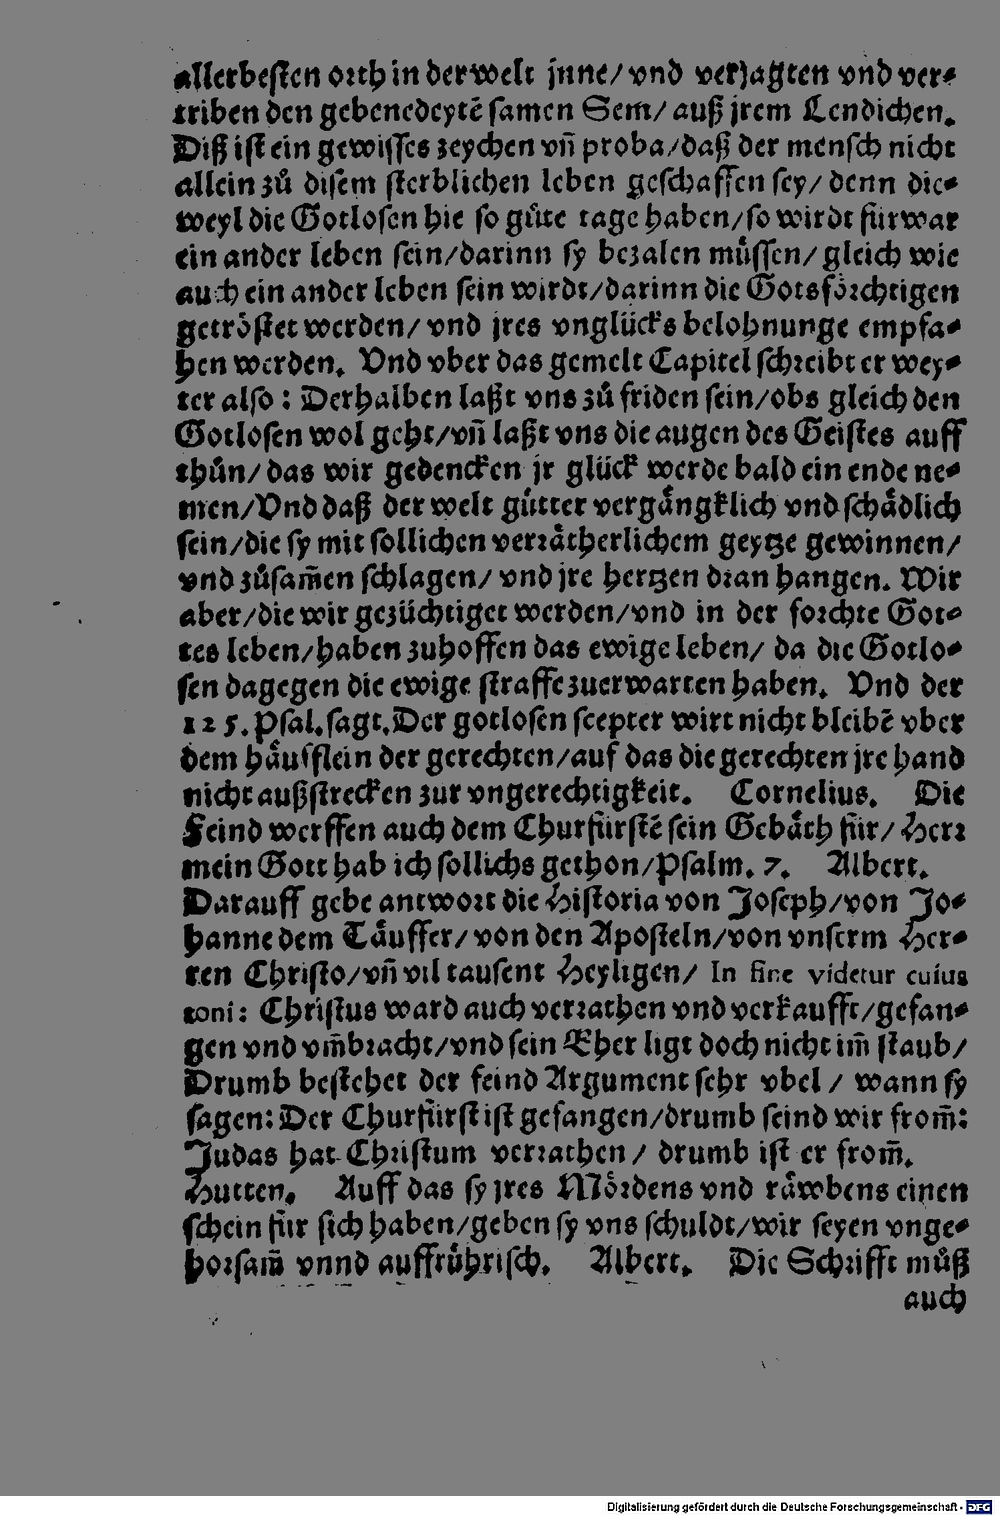 allerbesten orth in der welt jnne/ vnd verjagten vnd ver-
triben den gebenedeytē samen Sem/ auß jrem Lendichen.
Diß ist ein gewisses zeychen vn̄ proba/daß der mensch nicht
allein zů disem sterblichen leben geschaffen sey/ denn die-
weyl die Gotlosen hie so gůte tage haben/so wirdt fürwar
ein ander leben sein/darinn sy bezalen müssen/ gleich wie
auch ein ander leben sein wirdt/darinn die Gotsförchtigen
getröstet werden/ vnd jres vnglücks belohnunge empfa-
hen werden. Vnd vber das gemelt Capitel schreibt er wey-
ter also: Derhalben laßt vns zů friden sein/obs gleich den
Gotlosen wol geht/vn̄ laßt vns die augen des Geistes auff
thůn/ das wir gedencken jr glück werde bald ein ende ne-
men/Vnd daß der welt gütter vergängklich vnd schädlich
sein/die sy mit sollichen verrätherlichem geytze gewinnen/
vnd zůsam̄en schlagen/ vnd jre hertzen dran hangen. Wir
aber/die wir gezüchtiget werden/vnd in der forchte Got-
tes leben/haben zuhoffen das ewige leben/ da die Gotlo-
sen dagegen die ewige straffe zuerwarten haben. Vnd der
125. Psal. sagt. Der gotlosen scepter wirt nicht bleibē vber
dem häufflein der gerechten/auf das die gerechten jre hand
nicht außstrecken zur vngerechtigkeit. Cornelius. Die
Feind werffen auch dem Churfürstē sein Gebäth für/ Herr
mein Gott hab ich sollichs gethon/Psalm. 7. Albert.
Darauff gebe antwort die Historia von Joseph/von Jo-
hanne dem Täuffer/ von den Aposteln/von vnserm Her-
ren Christo/vn̄ vil tausent Heyligen/ In fine videtur cuius
toni: Christus ward auch verrathen vnd verkaufft/gefan-
gen vnd vm̄bracht/vnd sein Eher ligt doch nicht im̄ staub/
Drumb bestehet der feind Argument sehr vbel / wann sy
sagen: Der Churfürst ist gefangen/drumb seind wir from̄:
Judas hat Christum verrathen / drumb ist er from̄.
Hutten. Auff das sy jres Mördens vnd räwbens einen
schein für sich haben/geben sy vns schuldt/wir seyen vnge-
horsam̄ vnnd auffrührisch. Albert. Die Schrifft můß
auch
Digitalisierung gefördert durch die Deutsche Forschungsgemeinschaft - DFG